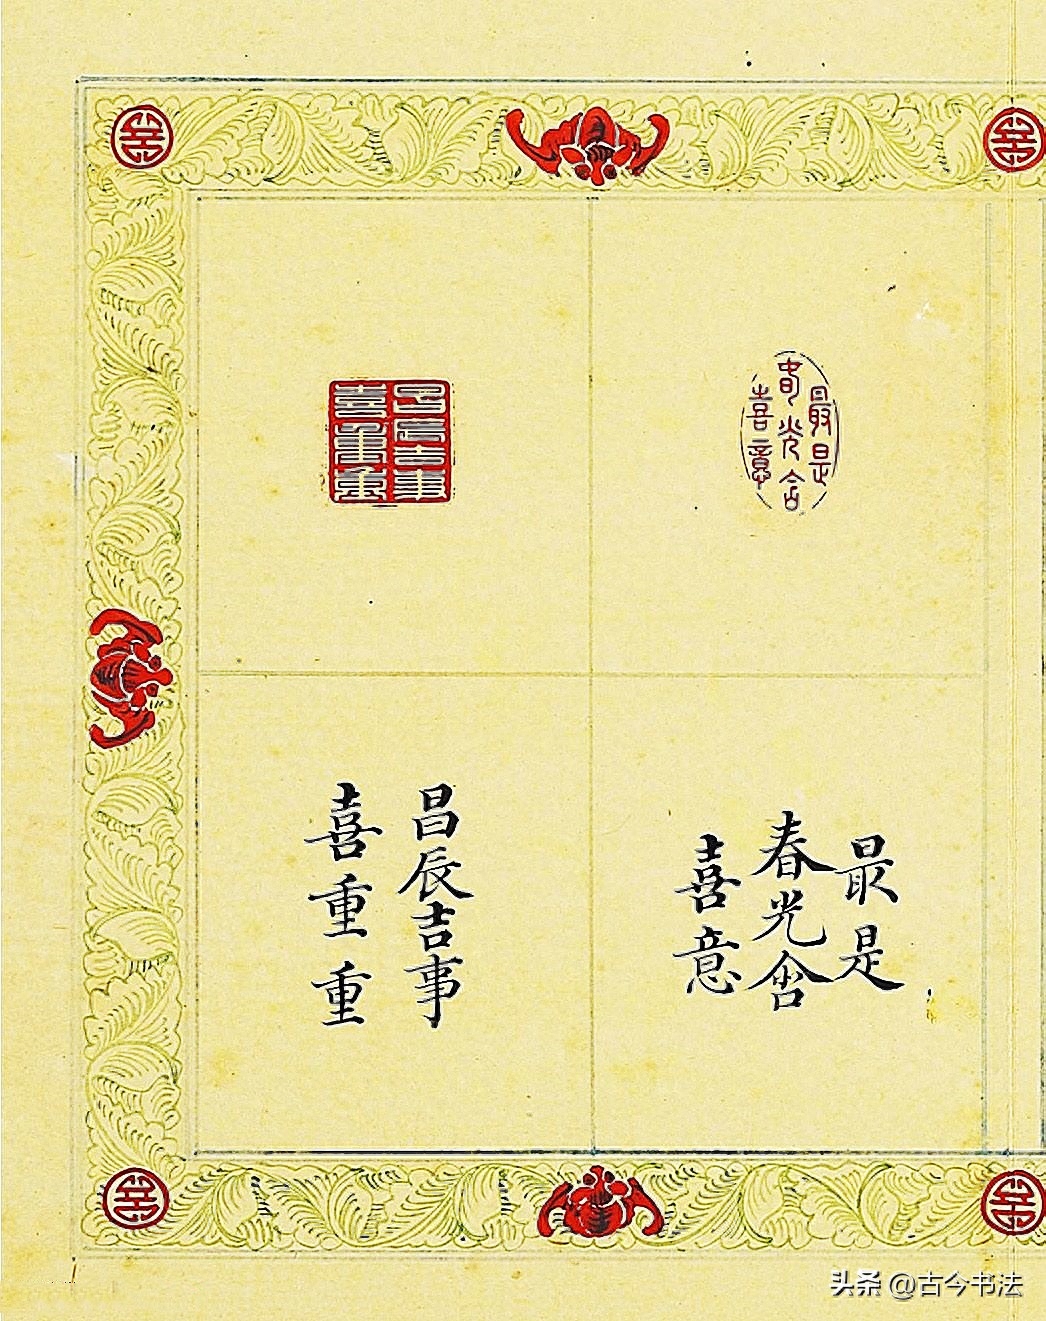 最是
春光含
喜意
昌辰吉事
喜重重
最是
春光含
喜意
昌辰吉事
喜重重
头条 @古今书法